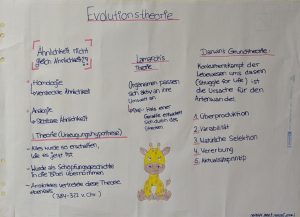 Evolutionstheorie
Ähnlichkeit nicht
gleich Ähnlichkeit?!
• Homologie
→ versteckte Ähnlichkeit
• Analogie
→ Sichtbare Ähnlichkeit
1. Theorie (Urzeugungshypothese)
- Alles wurde so erschaffen,
wie es jetzt ist
- Wurde als Schöpfungsgeschichte
in die Bibel übernommen
- Aristoteles vertrat diese Theorie
ebenfalls (384-322 v. Chr.)
Lamarcks
Theorie
Organismen passen
sich aktiv an ihre
Umwelt an
Hals einer
Giraffe entwickelt
sich durch das
Strecken
Darwins Grundtheorie:
Konkurrenzkampf der
Lebewesen ums dasein
(Struggle for Life) ist
die Ursache für den
Artenwandel
1. Überproduktion
2. Variabilität
3. Natürliche Selektion
4. Vererbung
5.